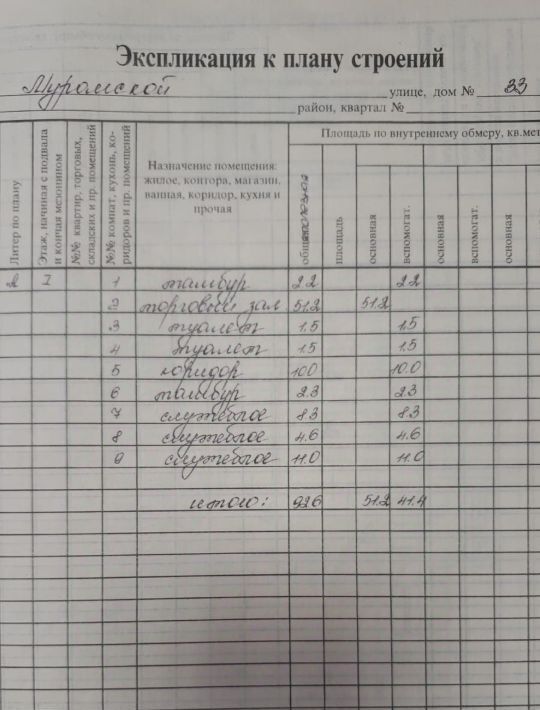 Экспликация к плану строений
Муромской улице, дом № 33
район, квартал №
Литер по плану
Этаж, начиная с подвала и кончая мезонином
№№ квартир, торговых, складских и пр. помещений
№№ комнат, кухонь, коридоров и пр. помещений
Назначение помещения: жилое, контора, магазин, ванная, коридор, кухня и прочая
Площадь по внутреннему обмеру, кв.мет
площадь
основная
вспомогат.
основная
вспомогат.
основная
А I 1 тамбур 2.2 2.2
2 торговый зал 51.2 51.2
3 туалет 1.5 1.5
4 туалет 1.5 1.5
5 коридор 10.0 10.0
6 тамбур 2.3 2.3
7 служебное 8.3 8.3
8 служебное 4.6 4.6
9 служебное 11.0 11.0
итого: 92.6 51.2 41.4